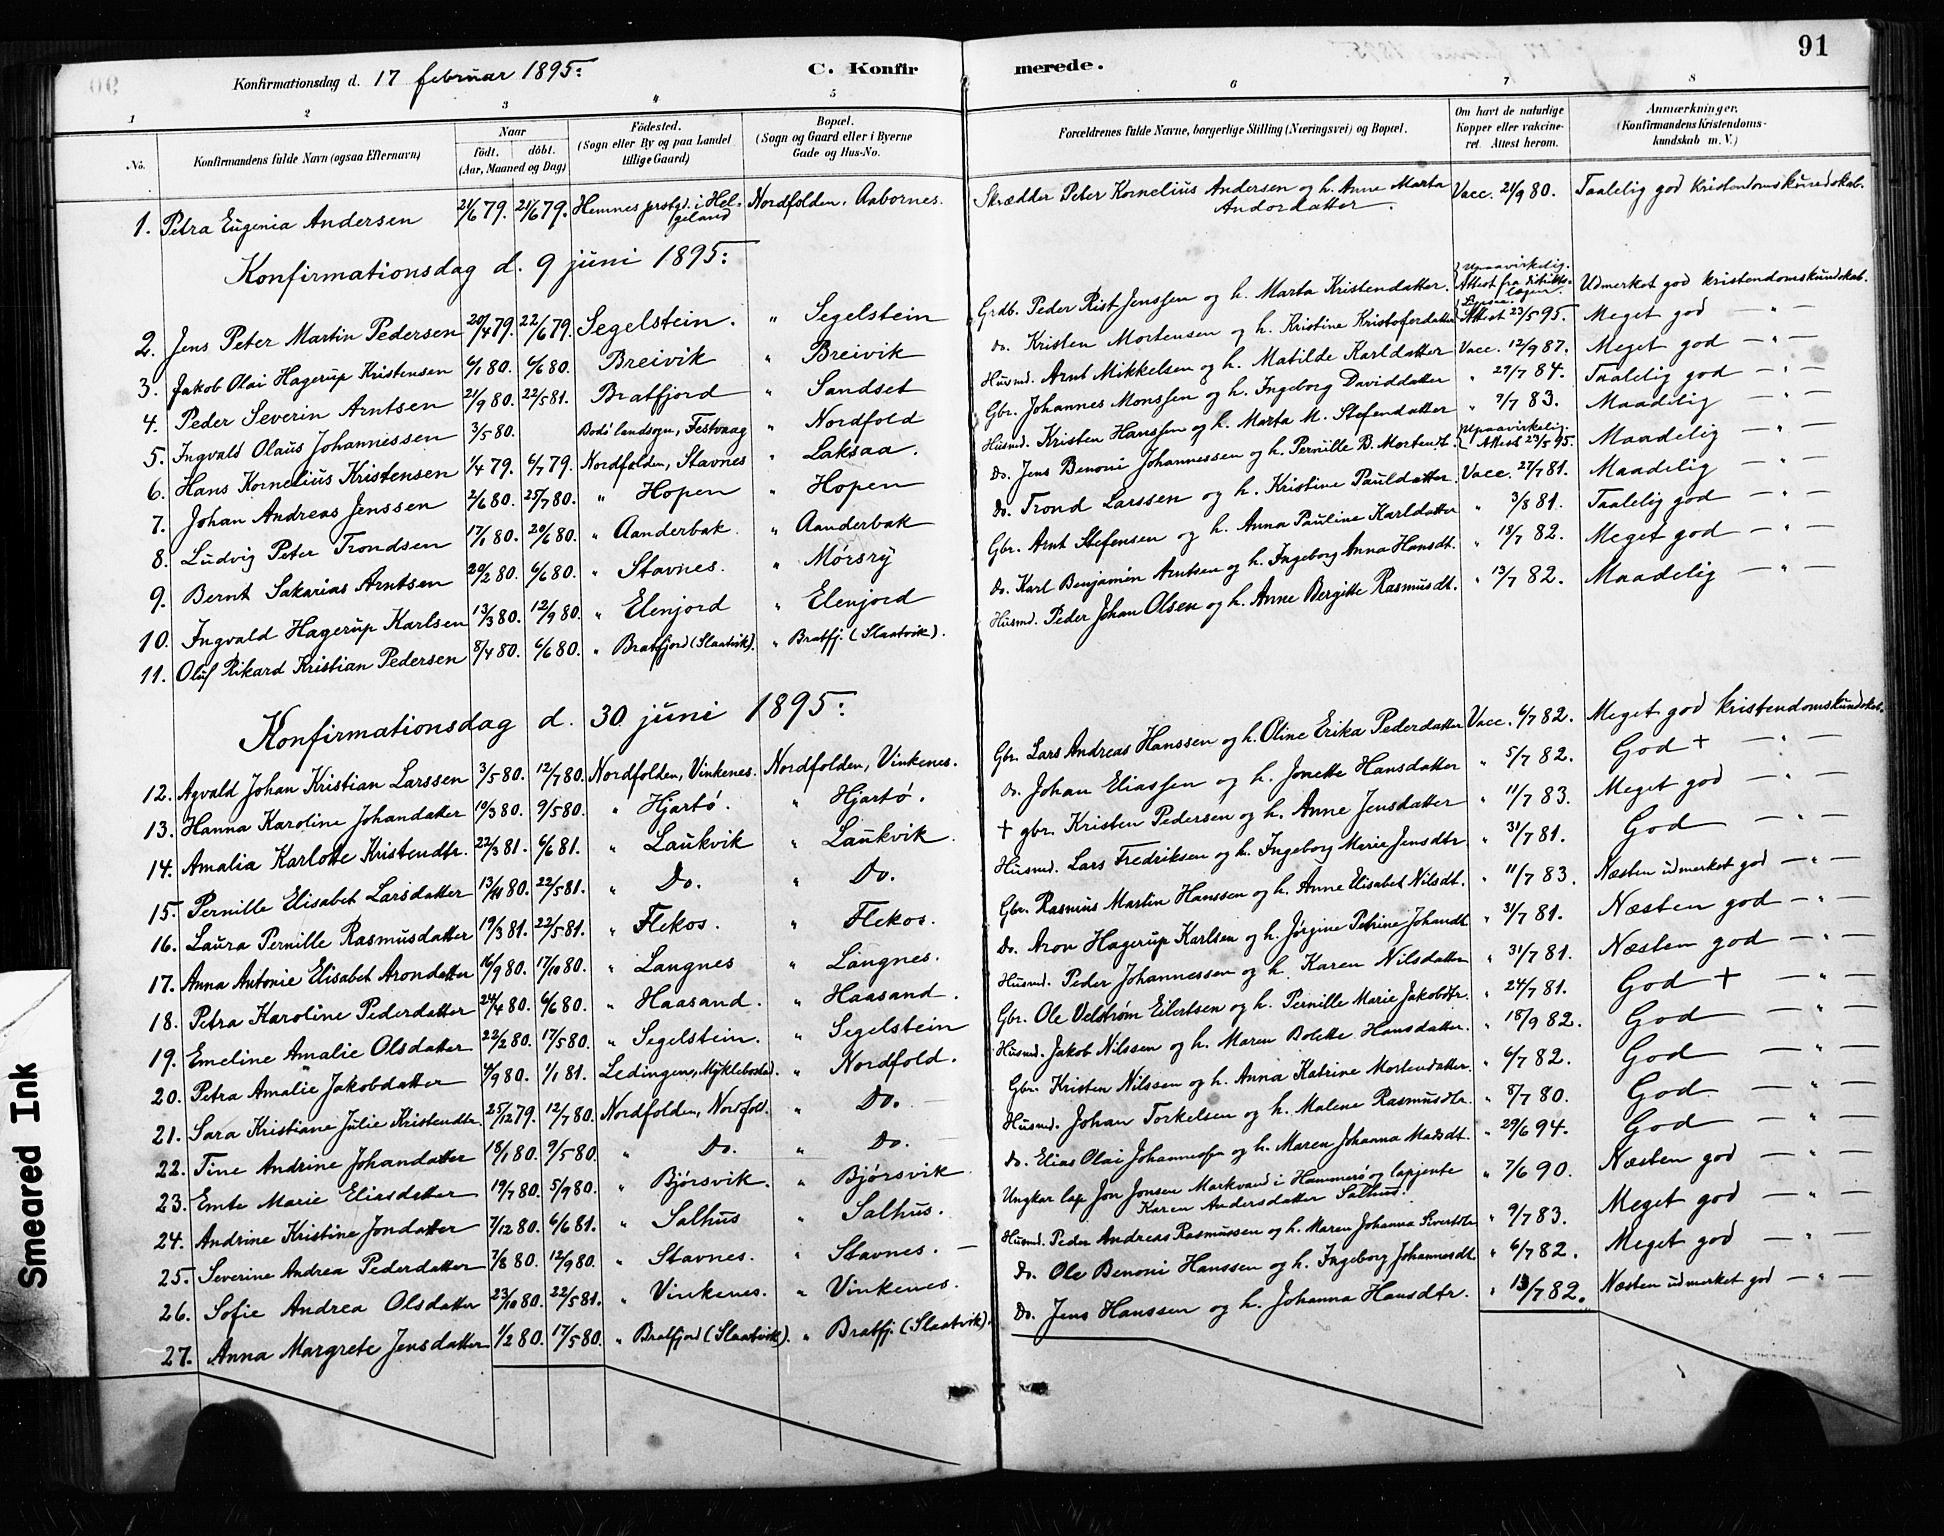 91
Konfirmationsdag d. 17 februar 1895:
C. Konfirmerede.
1 2 3 4 5 6 7 8
No. | Konfirmandens fulde Navn (ogsaa Efternavn) | Naar født. døbt. (Aar, Maaned og Dag) | Fødested. (Sogn eller By og paa Landet tillige Gaard) | Bopæl. (Sogn og Gaard eller i Byerne Gade og Hus-No. | Forældrenes fulde Navne, borgerlige Stilling (Næringsvei) og Bopæl. | Om havt de naturlige Kopper eller vakcineret. Attest herom. | Anmærkninger. (Konfirmandens Kristendomskundskab m. V.)
1. Petra Eugenia Andersen 21/6 79. 21/6 79. Hemnes prstgj. i Helgeland Nordfolden, Aabornes. Skrædder Peter Kornelius Andersen og h. Anne Marta Andordatter. Vacc. 21/9 80. Taalelig god Kristendomskundskab.
Konfirmationsdag d. 9 juni 1895:
2. Jens Peter Martin Pedersen 20/4 79. 22/6 79. Segelstein. " Segelstein Grdb. Peder Rist Jenssen og h. Marta Kristendatter. Upaavirkelig. Attest fra distriktslæger. Udmerket god kristendomskundskab.
3. Jakob Olai Hagerup Kristensen 6/1 80. 6/6 80. Breivik " Breivik do. Kristen Mortensen og h. Kristine Kristoferdatter Attest 23/5 95. Meget god — " —
4. Peder Severin Arntsen 21/9 80. 22/5 81. Bratfjord " Sandset Husmd. Arnt Mikkelsen og h. Matilde Karldatter Vacc. 12/9 87. Meget god — " —
5. Ingvald Olaus Johannessen 3/5 80. Bodø landsogn, Festvaag " Nordfold Gbr. Johannes Monssen og h. Ingeborg Daviddatter " 29/7 84. Taalelig god — " —
6. Hans Kornelius Kristensen 1/4 79. 6/7 79. Nordfolden, Stavnes " Laksaa. Husmd. Kristen Hanssen og h. Marta M. Stefendatter " 9/7 83. Maadelig — " —
7. Johan Andreas Jenssen 2/6 80. 25/7 80. " Hopen " Hopen Do. Jens Benoni Johannessen og h. Pernille B. Mortensd. Upaavirkelig. Attest 23/5 95. Maadelig — " —
8. Ludvig Peter Trondsen 17/1 80. 20/6 80. " Aanderbak. " Aanderbak Do. Trond Larssen og h. Kristine Pauldatter. Vacc. 27/7 81. Maadelig — " —
9. Bernt Sakarias Arntsen 20/2 80. 6/6 80. " Stavnes. " Mørsry Gbr. Arnt Stefensen og h. Anna Pauline Karldatter " 3/8 81. Taalelig god — " —
10. Ingvald Hagerup Karlsen 13/3 80. 12/9 80. " Elenjord " Elenjord Do. Karl Benjamin Arntsen og h. Ingeborg Anna Hansdt. " 18/7 82. Meget god — " —
11. Oluf Rikard Kristian Pedersen 8/4 80. 6/6 80. " Bratfjord (Slaatvik). " Bratfj. (Slaatvik). Husmd. Peder Johan Olsen og h. Anne Bergitte Rasmusdt. " 13/7 82. Maadelig — " —
Konfirmationsdag d. 30 juni 1895:
12. Agvald Johan Kristian Larssen 3/5 80. 12/7 80. Nordfolden, Vinkenes. Nordfolden, Vinkenes. Gbr. Lars Andreas Hanssen og h. Oline Erika Pederdatter Vacc. 6/7 82. Meget god kristendomskundskab.
13. Hanna Karoline Johandatter 10/3 80. 9/5 80. " Hjartø. " Hjartø. Do. Johan Eliassen og h. Jonette Hansdatter " 5/7 82. God + — " —
14. Amalia Karlotte Kristendtr. 22/3 81. 6/6 81. " Laukvik " Laukvik. + gbr. Kristen Pedersen og h. Anne Jensdatter " 11/7 83. Meget god — " —
15. Pernille Elisabet Larsdatter 13/11 80. 22/5 81. " Do. " Do. Husmd. Lars Fredriksen og h. Ingeborg Marie Jensdtr " 31/7 81. God — " —
16. Laura Pernille Rasmusdatter 19/3 81. 22/5 81. " Flekos. " Flekos. Gbr. Rasmus Martin Hanssen og h. Anne Elisabet Nilsdt. " 11/7 83. Næsten udmerket god — " —
17. Anna Antonie Elisabet Arondatter 16/9 80. 17/10 80. " Langnes " Langnes. Do. Aron Hagerup Karlsen og h. Jørgine Petrine Johandt " 31/7 81. Næsten god — " —
18. Petra Karoline Pederdatter 24/4 80. 6/6 80. " Haasand. " Haasand. Husmd. Peder Johannessen og h. Karen Nilsdatter " 31/7 81. Næsten god — " —
19. Emeline Amalie Olsdatter 22/2 80. 17/5 80. " Segelstein. " Segelstein Gbr. Ole Velstrøm Eilertsen og h. Pernille Marie Jakobdtr. " 24/7 81. God + — " —
20. Petra Amalie Jakobdatter 4/9 80. 1/1 81. Lødingen, Myklebostad. " Nordfold. Husmd. Jakob Nilssen og h. Maren Bolette Hansdatter. " 18/9 82. God — " —
21. Sara Kristiane Julie Kristendtr. 25/12 79. 12/7 80. Nordfolden, Nordfold. " Do. Gbr. Kristen Nilssen og h. Anna Katrine Mortendatter. " 6/7 82. God — " —
22. Tine Andrine Johandatter 18/1 80. 9/5 80. " Do. " Do. Husmd. Johan Torkelsen og h. Malene Rasmusdtr. " 8/7 80. God — " —
23. Emte Marie Eliasdatter 19/7 80. 5/9 80. " Bjørsvik. " Bjørsvik Do. Elias Olai Johannessen og h. Maren Johanna Madsdt. " 29/6 94. God — " —
24. Andrine Kristine Jondatter 7/12 80. 6/6 81. " Salhus " Salhus. Ungkar lap Jon Jonsen Markvand i Hammerø og lapjente Karen Andersdatter Salhus. " 7/6 90. Næsten god — " —
25. Severine Andrea Pederdatter 7/8 80. 12/9 80. " Stavnes. " Stavnes. Husmd. Peder Andreas Rasmussen og h. Maren Johanna Sivertdtr " 9/7 83. Meget god — " —
26. Sofie Andrea Olsdatter 23/10 80. 22/5 81. " Vinkenes. " Vinkenes. Do. Ole Benoni Hanssen og h. Ingeborg Johannesdt. " 6/7 82. Meget god — " —
27. Anna Margrete Jensdatter 1/2 80. 17/5 80. " Bratfjord (Slaatvik). " Bratfj. (Slaatvik). Do. Jens Hanssen og h. Johanna Hansdtr. " 13/7 82. Næsten udmerket god — " —
Smeared Ink